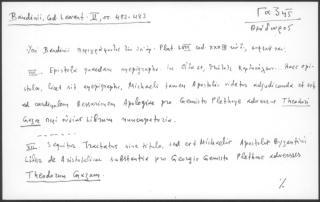 Bandinii, Cod. Laurent. II, στ. 482-483
Γαζῆς
Θεόδωρος
Bandinii Plut. LVIII cod. XXXIII
VII. Epistola quaedam anepigrapha. Haec epi-
stola, licet sit anepigrapha, Michaelis tamen Apostolii videtur adiudicanda et est
ad cardinalem Bessarionem Apologiae pro Gemisto Plethone adversus Theodori
Gazae περὶ οὐσίας Librum nuncupatoria.
XII. Sequitur Tractatus sine titulo, sed est Michaelis Apostolii Byzantini
Liber de Aristotelica substantia pro Georgio Gemisto Plethone adversus
Theodorum Gazam.